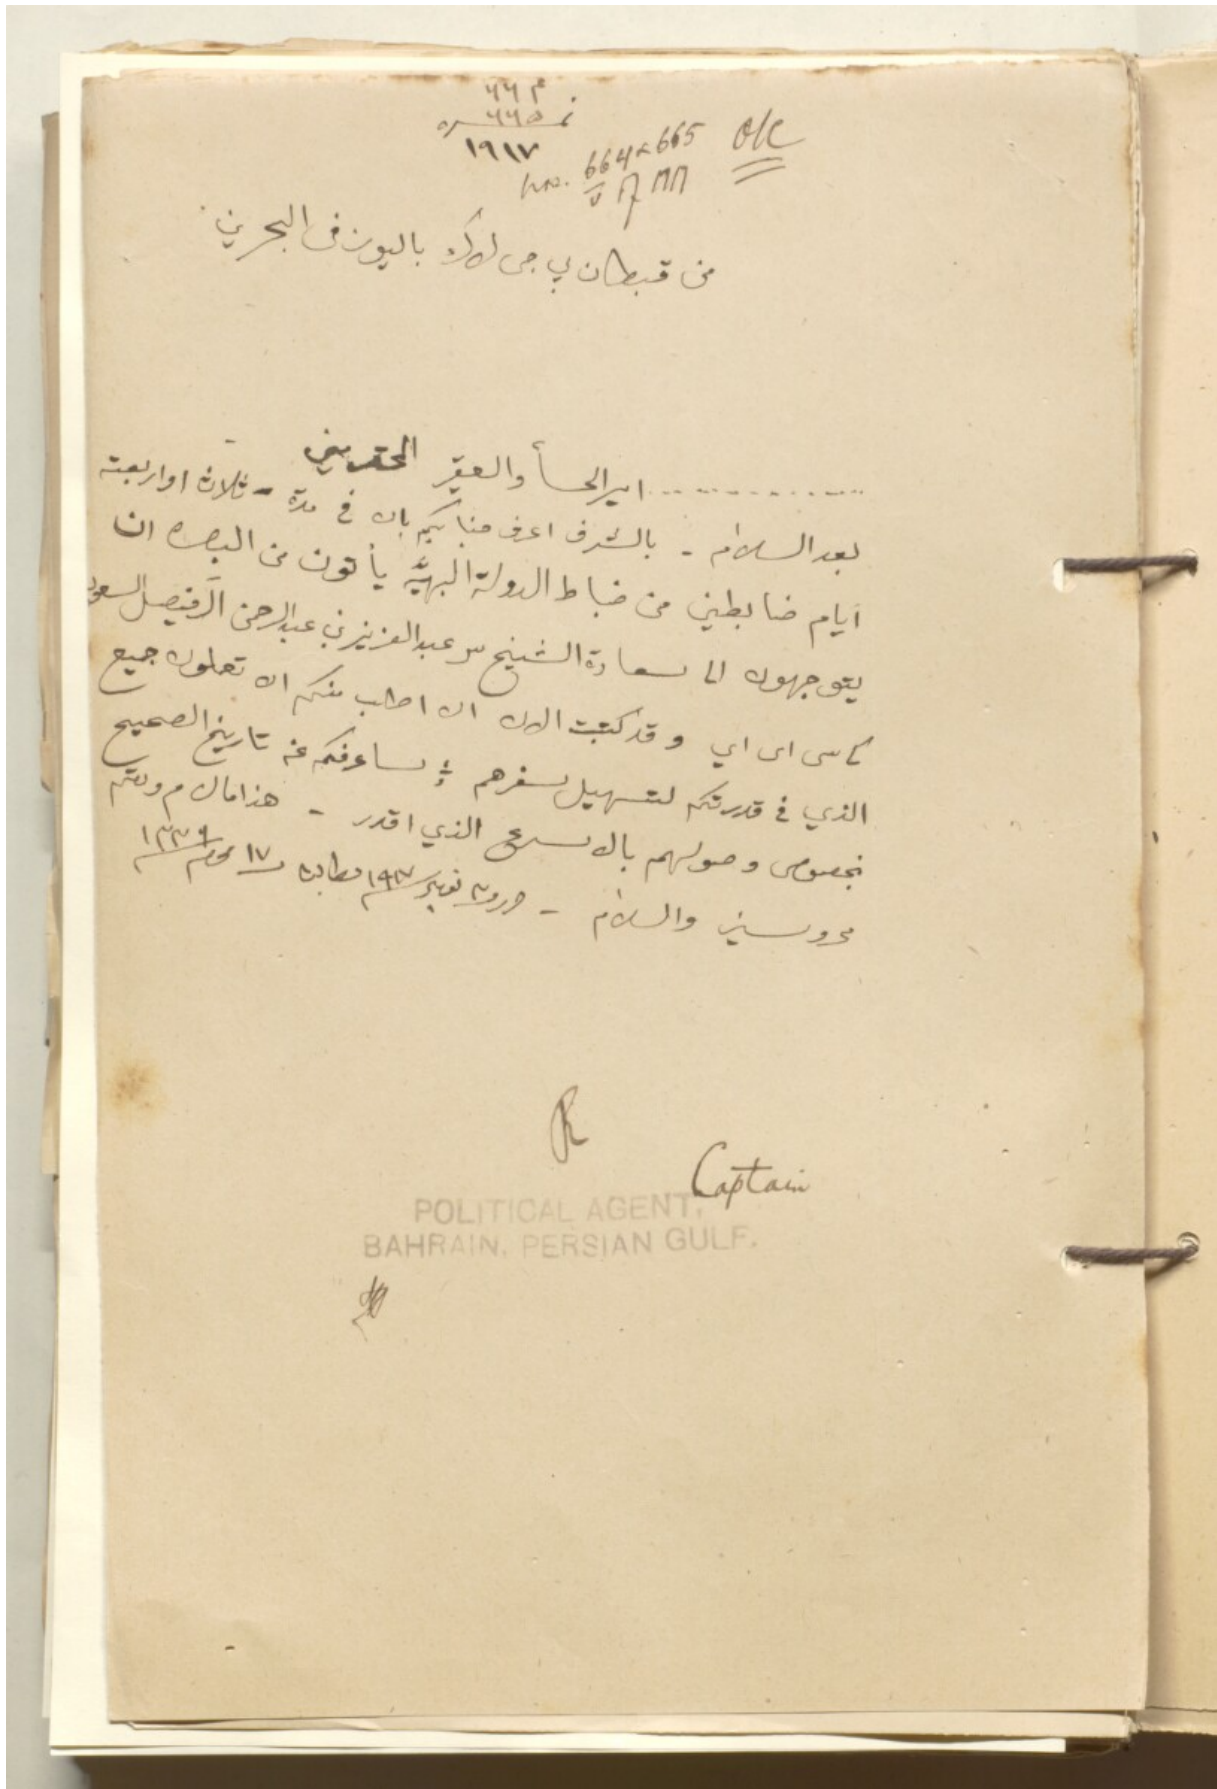 ٦٦٤
نمره ٦٦٥
١٩١٧
No. 664 & 665
O/C
من قبطان بي جي لاك باليوز في البحرين
امير الحسأ والعقير المحترمين
بعد السلام - بالشرف اعرف جنابكم بان في مدة - ثلاث او اربعة
ايام ضابطين من ضباط الدولة البهيّه يأتون من البصره ان
يتوجهون الى سعادة الشيخ سر عبدالعزيز بن عبدالرحمن الفيصل السعود
كاسي اي اي وقد كتبت الان ان اطلب منكم ان تعملون جميع
الذي في قدرتكم لتسهيل سفرهم و ساعرفكم عن تاريخ الصحيح
بخصوص وصولهم بالاسرع الذي اقدر - هذا مالزم ودمتم
محروسين والسلام - حرر ٣ نومبر ١٩١٧ مطابق ١٧ محرم ١٣٣٦
R
Captain
POLITICAL AGENT,
BAHRAIN, PERSIAN GULF.